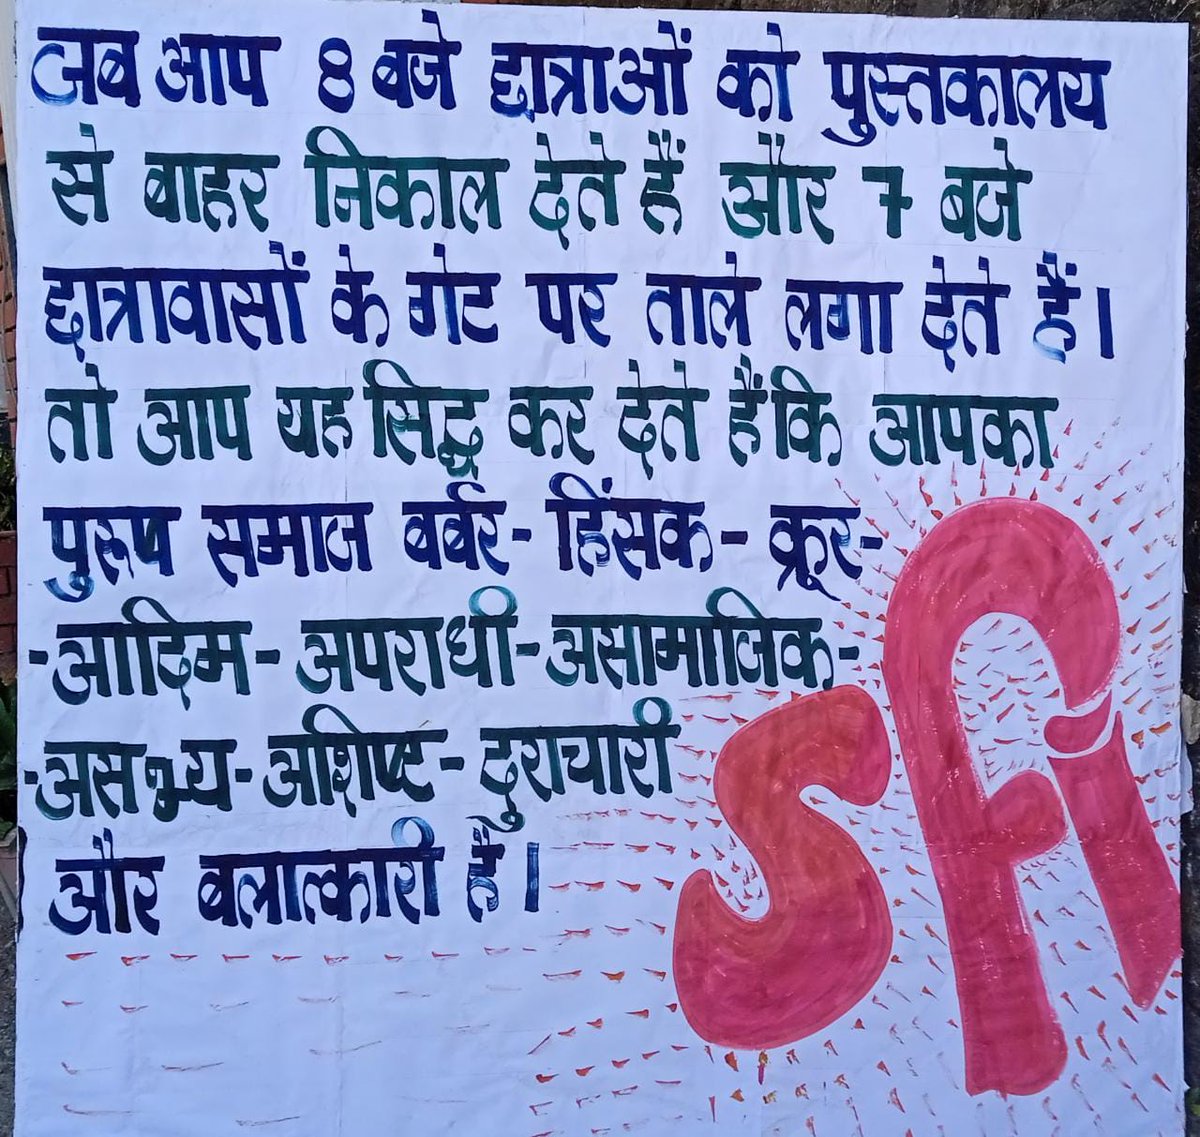 जब आप 8 बजे छात्राओं को पुस्तकालय
से बाहर निकाल देते हैं और 7 बजे
छात्रावासों के गेट पर ताले लगा देते हैं।
तो आप यह सिद्ध कर देते हैं कि आपका
पुरूष समाज बर्बर- हिंसक - क्रूर-
-आदिम - अपराधी - असामाजिक -
-असभ्य - अशिष्ट - दुराचारी
और बलात्कारी है।
SFi